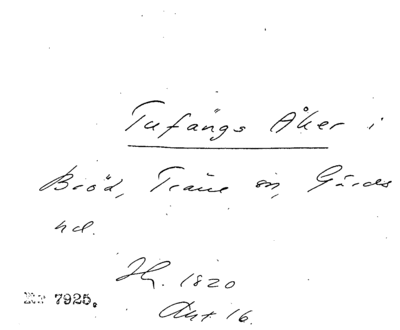 Tufängs Åker i
Bröd, Träne sn, Gärds
hd.
Hg. 1820
Akt 16.
Nr 7925.